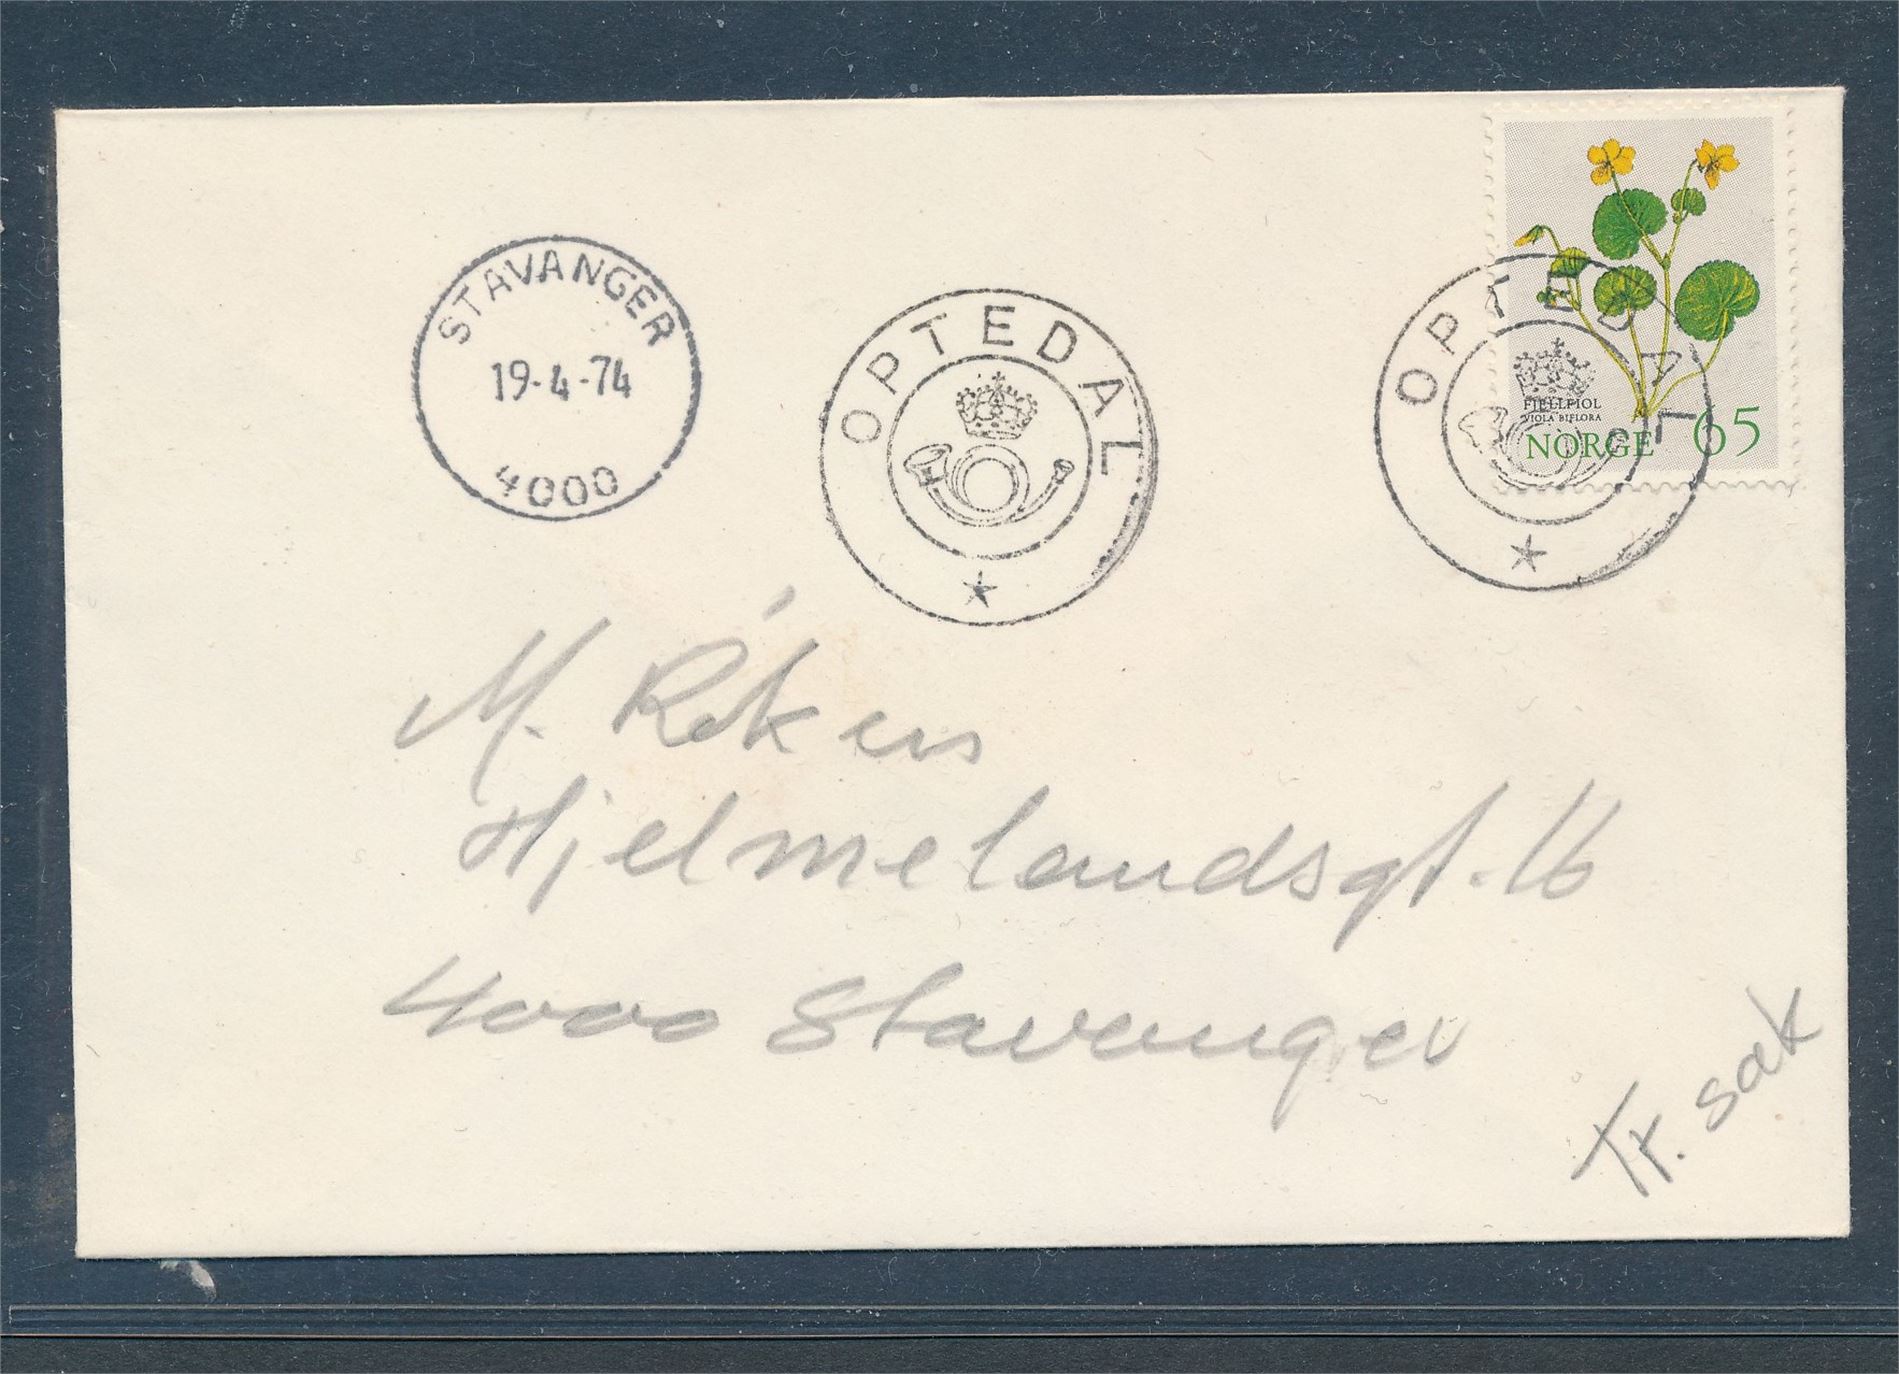 STAVANGER
19-4-74
4000
OPTEDAL
OPTEDAL
FJELLFIOL
VIOLA BIFLORA
NORGE 65
M.
Hjelmelandsgt. 16
4000 Stavanger
Tr. sak